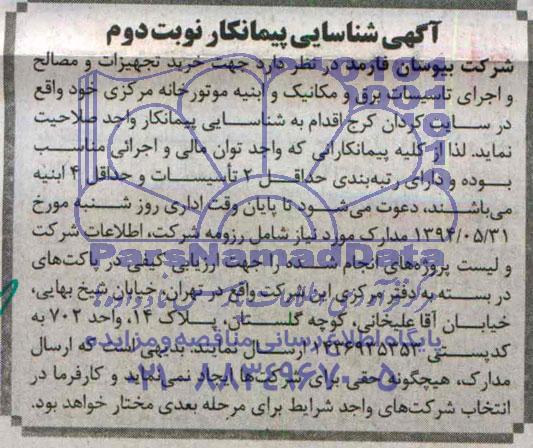 آگهی شناسایی پیمانکار نوبت دوم
شرکت بیوسان فارمد در نظر دارد جهت خرید تجهیزات و مصالح
و اجرای تاسیسات برق و مکانیک و ابنیه موتورخانه مرکزی خود واقع
در سایت کردان کرج اقدام به شناسایی پیمانکار واجد صلاحیت
نماید. لذا از کلیه پیمانکارانی که واجد توان مالی و اجرائی مناسب
بوده و دارای رتبه‌بندی حداقل ۲ تأسیسات و حداقل ۴ ابنیه
می‌باشند، دعوت می‌شود تا پایان وقت اداری روز شنبه مورخ
۱۳۹۴/۰۵/۳۱ مدارک مورد نیاز شامل رزومه شرکت، اطلاعات شرکت
ParsNamadData
و لیست پروژه‌های انجام شده را جهت ارزیابی کیفی در پاکت‌های
در بسته به دفتر مرکزی این شرکت واقع در تهران، خیابان شیخ بهایی،
خیابان آقاعلیخانی، کوچه گلستان، پلاک ۱۴، واحد ۷۰۲ به
پایگاه اطلاع رسانی مناقصه و مزایده
کدپستی ارسال نمایند. بدیهی است که ارسال
۰۲۱-۸۸۳۴۹۶۷۰-۵
مدارک، هیچگونه حقی برای شرکت‌ها ایجاد نمی‌نماید و کارفرما در
انتخاب شرکت‌های واجد شرایط برای مرحله بعدی مختار خواهد بود.